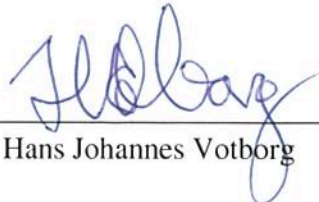 Hans Johannes Votborg